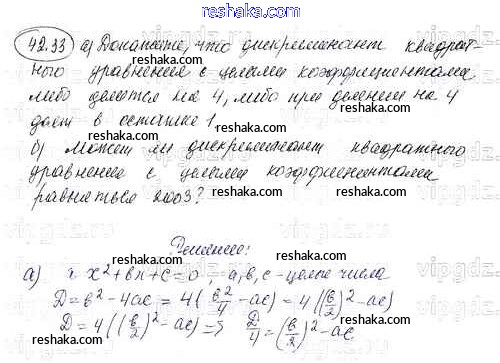 reshaka.ru
42.33 а) Докажите, что дискриминант квадрат-
ного уравнения с целыми коэффициентами
либо делится на 4, либо при делении на 4
даёт в остатке 1.
б) Может ли дискриминант квадратного
уравнения с целыми коэффициентами
равняться 2003?
Решение:
а) a·x²+bx+c=0, a,b,c – целые числа
D=b²-4ac = 4(b²/4 -ac)=4((b/2)²-ac)
D=4((b/2)²-ac)=> D/4=(b/2)²-ac